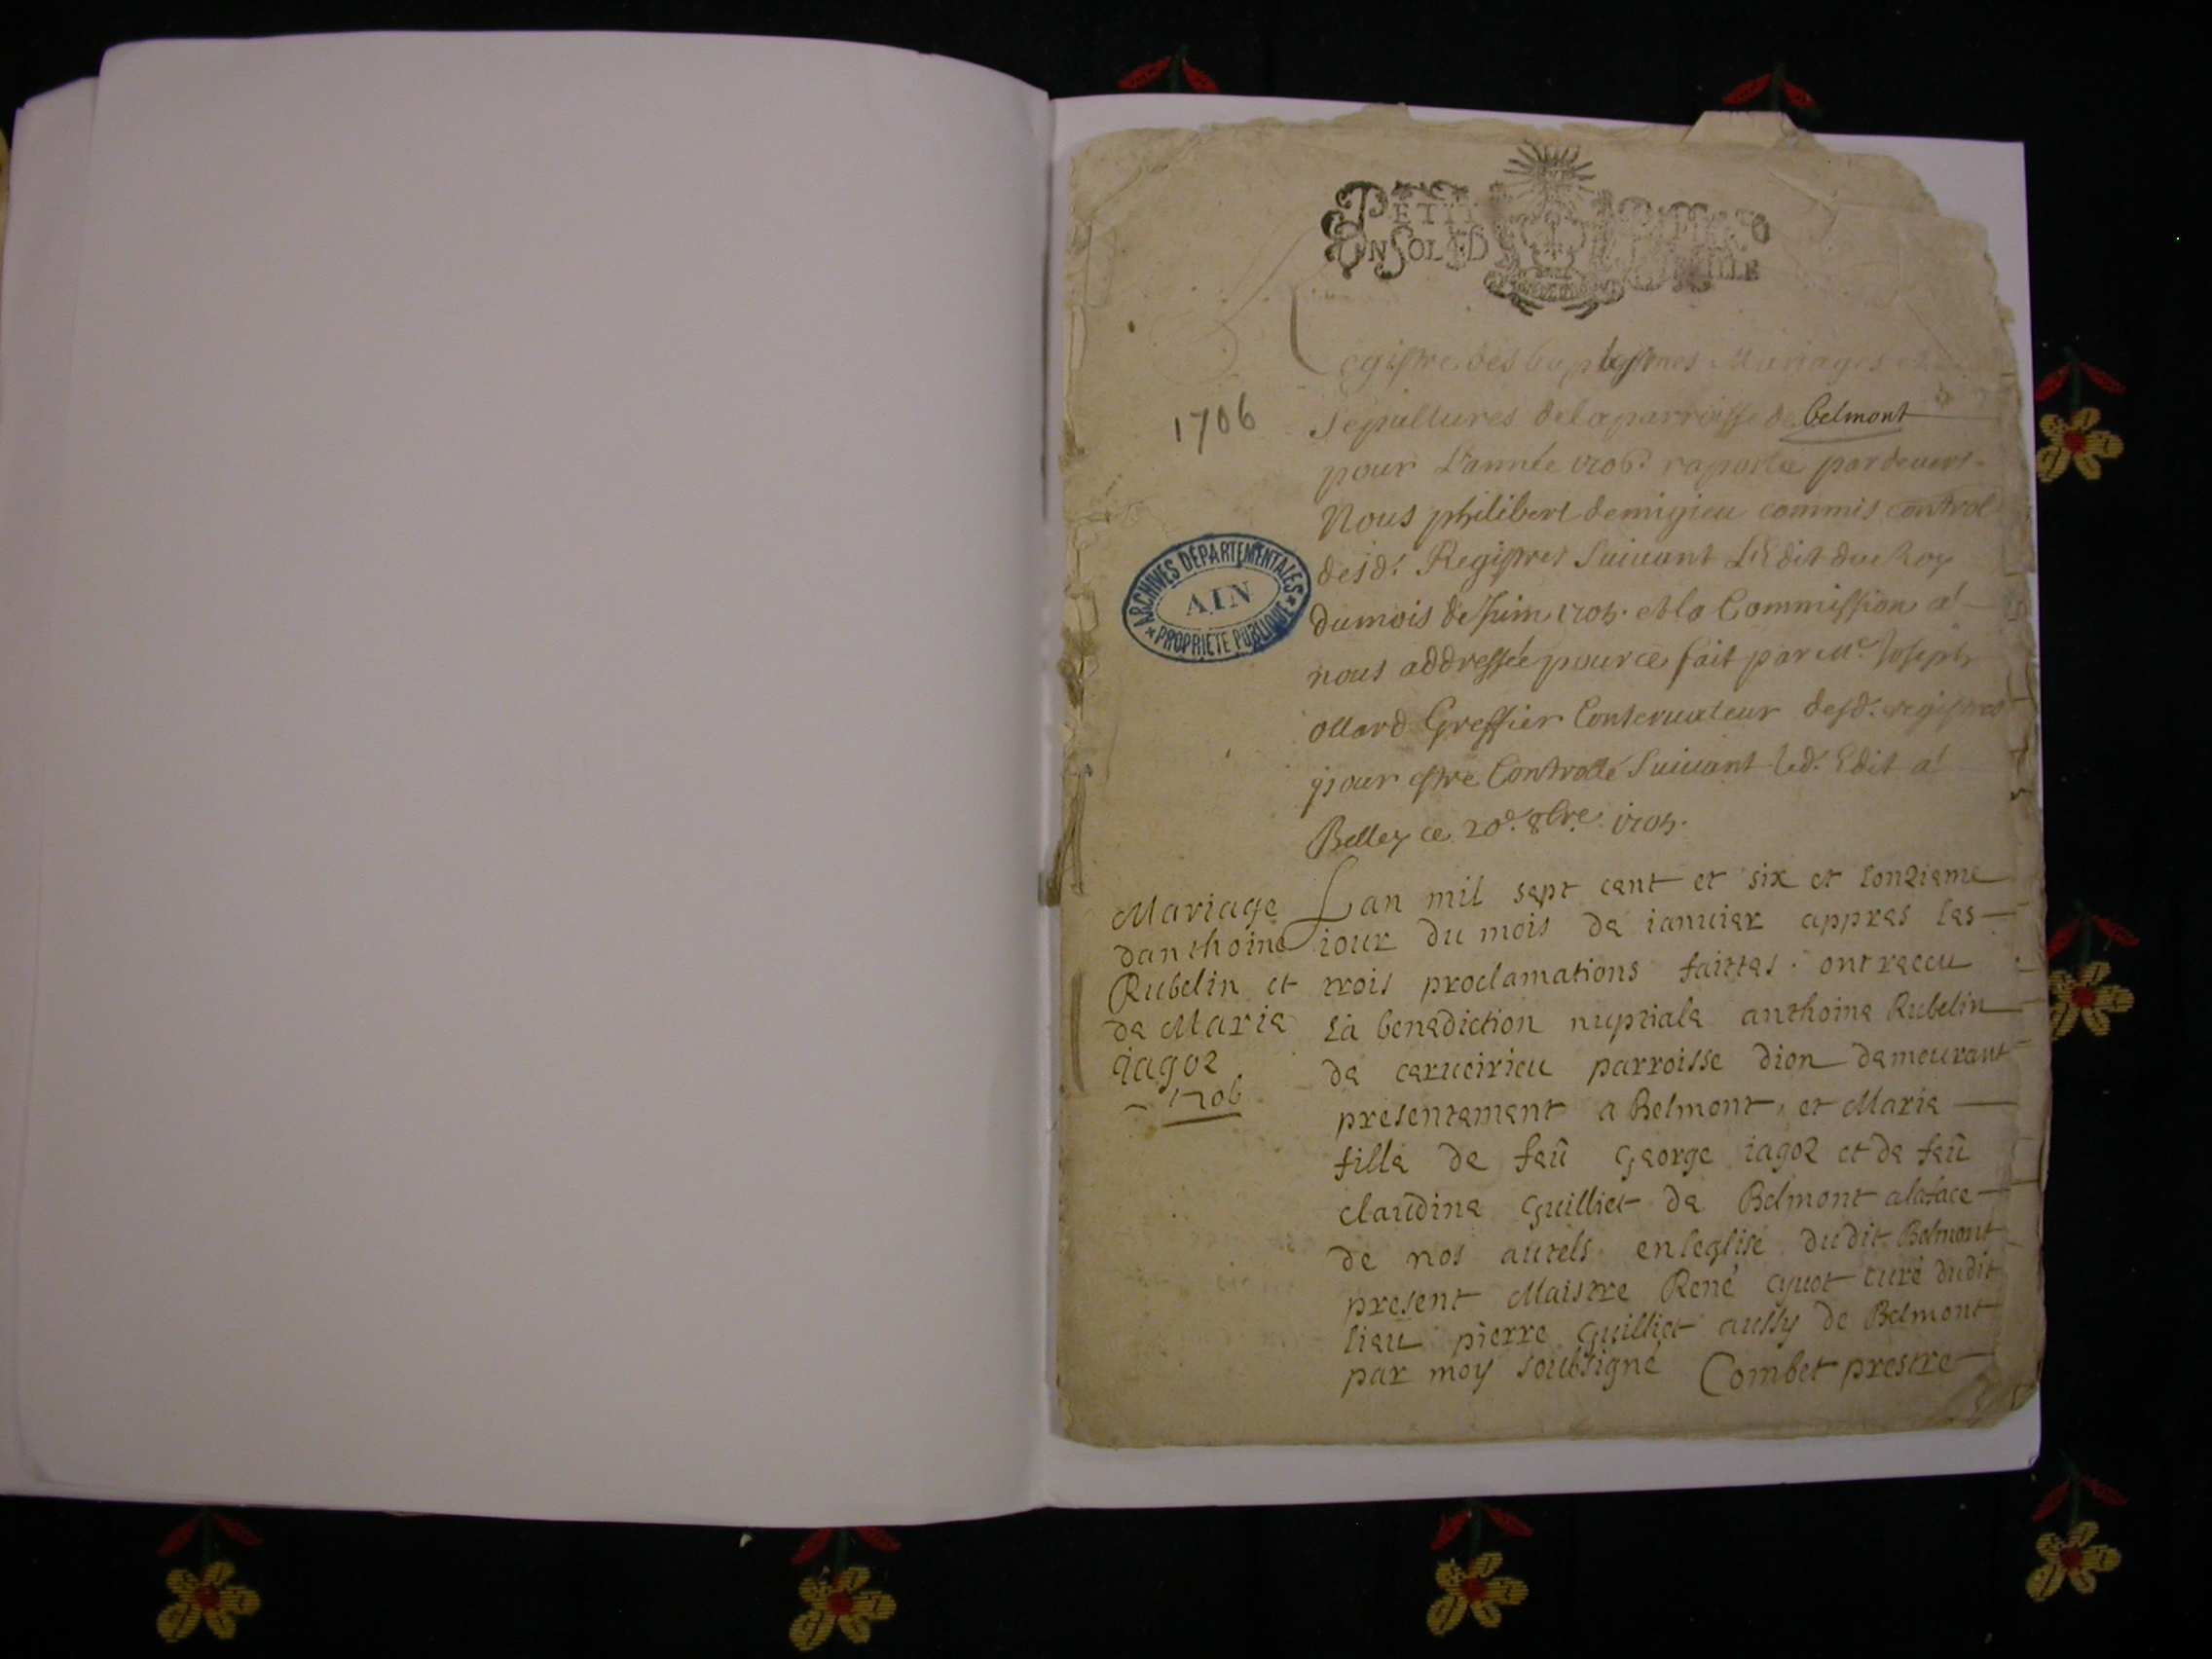 PETIT
UN SOL
1706
Registre des baptesmes Mariages et
sepultures de la parroisse de belmont
pour L'année 1706. raporté pardevers
Nous philibert demigieu commis control
desd. Registres Suivant L'Edit du Roy
du mois de Juin 1705. et la Commission a
nous addressée pour ce fait par Me. Joseph
ollard Greffier Conservateur desd. registres
pour estre Controllé Suivant led. Edit a
Belley ce 20e. 8bre. 1705.
ARCHIVES DÉPARTEMENTALES
AIN
PROPRIÉTÉ PUBLIQUE
Mariage
danthoine
Rubelin et
de Marie
iagoz
1706
Lan mil sept cent et six et lonzieme
iour du mois de ianuier appres les
trois proclamations faittes. ont receu
la benediction nuptiale anthoine Rubelin
de parroisse dion demeurant
presentement a Belmont, et Marie
fille de feû George iagoz et de feû
claûdine Guilliet de Belmont alaface
de nos autels enleglise dudit Belmont
present Maistre René curé dudit
lieu pierre Guilliet aussy de Belmont
par moy soubsigné Combet prestre